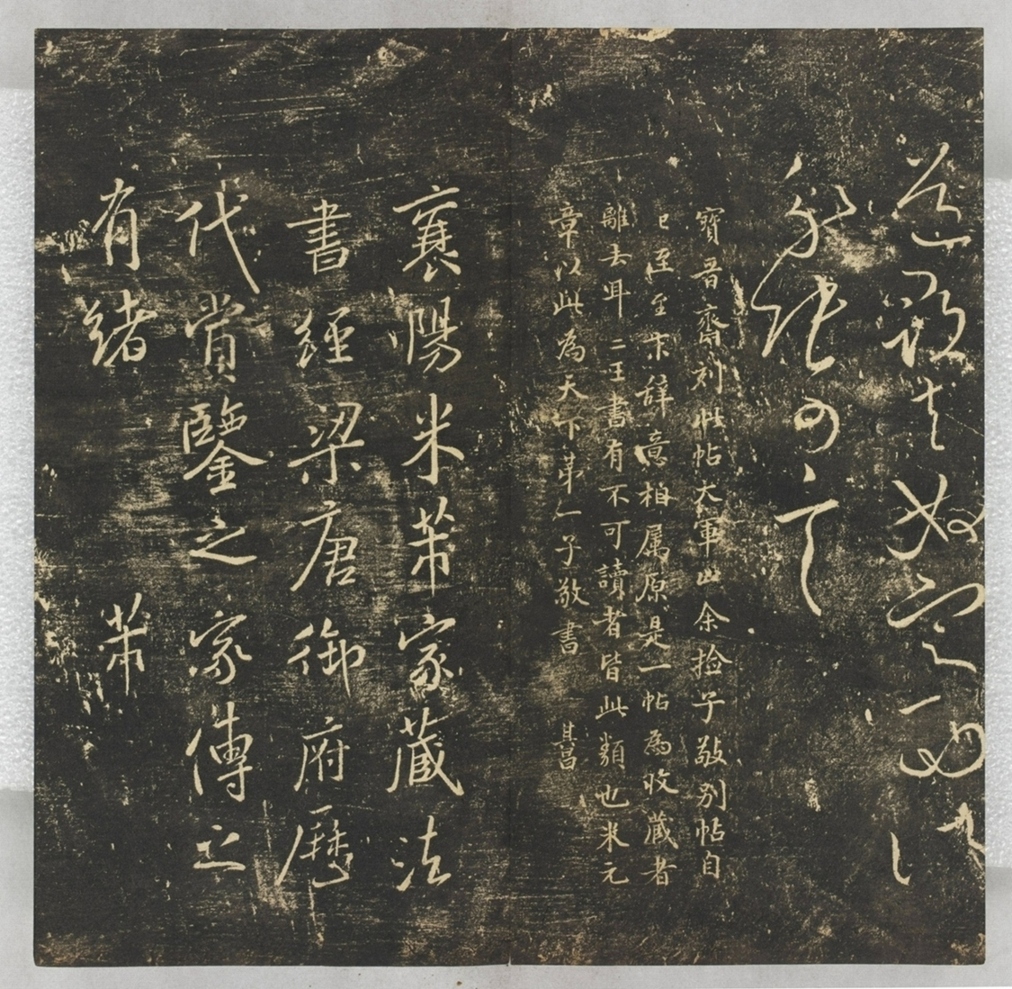 可言
寶晉齋刻此帖大軍止余撿子敬別帖自
已至至末辭意相屬原是一帖為收藏者
離去耳二王書有不可讀者皆此類也米元
章以此為天下第一子敬書 其昌
襄陽米芾家藏法
書經梁唐御府歷
代賞鑒之家傳之
有緒 芾